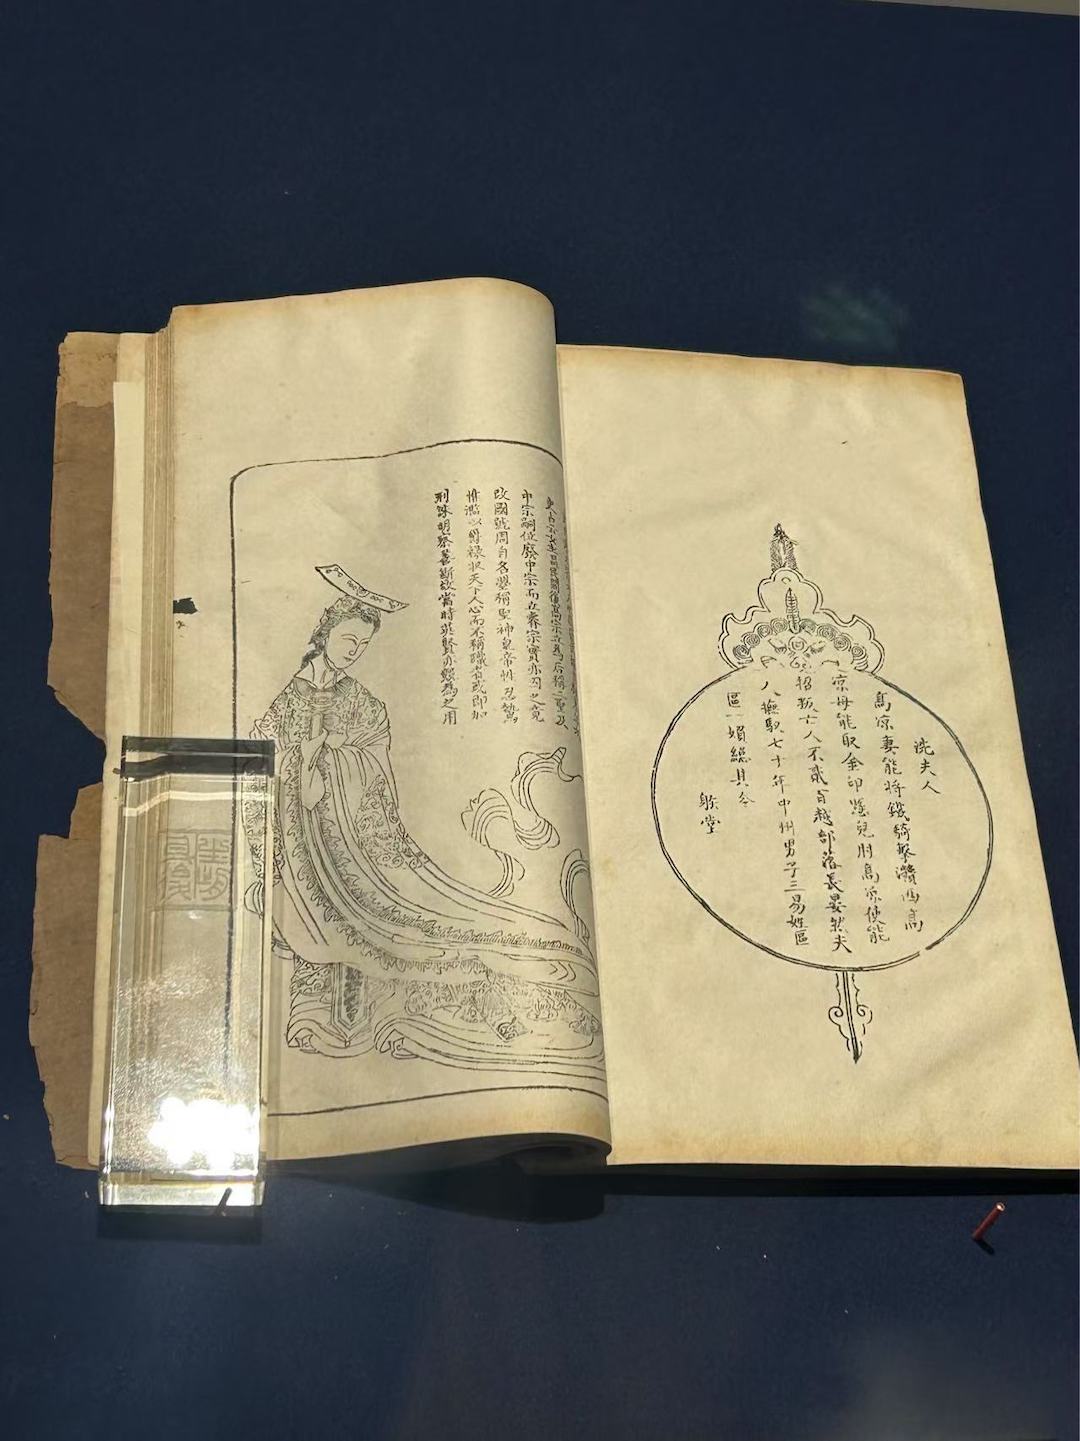 冼夫人
高涼妻能將鐵騎擊灨西高
涼母能取金印懸兒肘高涼使能
招叛亡人不貳百越部落長晏然夫
人撫馭七十年中州男子三易姓區
區一娘總具令
躲堂
中宗嗣位廢中宗而立睿宗實亦囚之竟
改國號周自名曌稱聖神皇帝性忍鷙
惟濫以爵祿收天下人心而不稱職者或即加
刑誅明察善斷故當時英賢亦競為之用